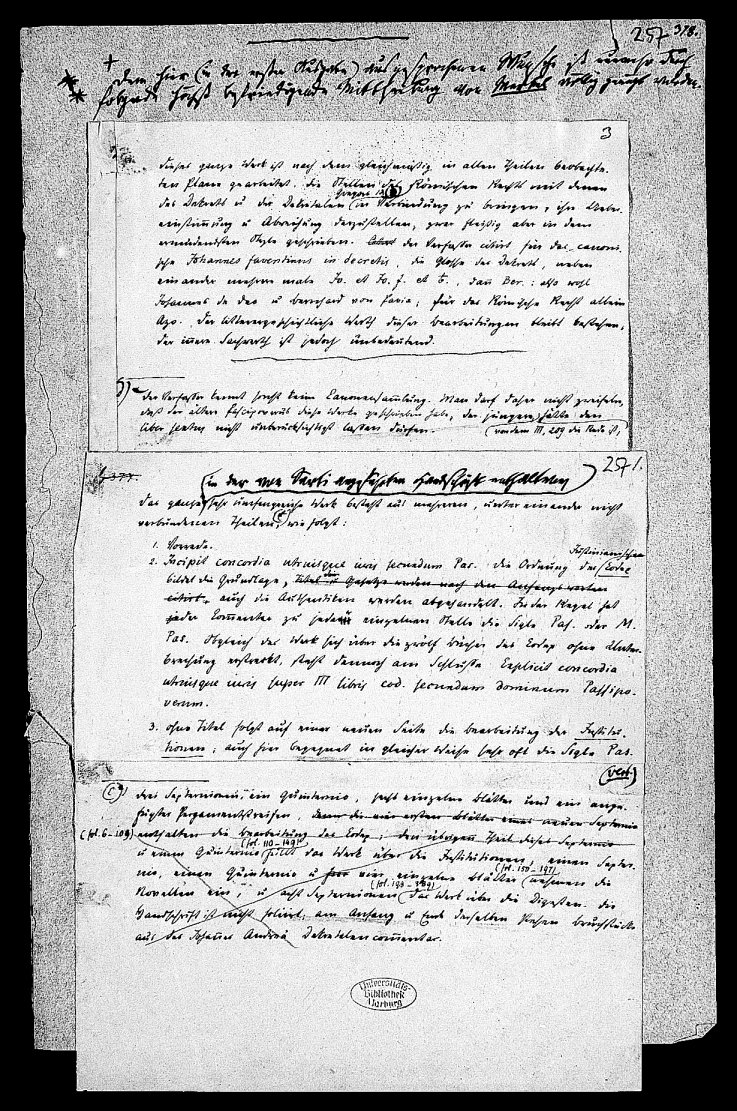 257 378.
+ Dem hier (in der ersten Ausgabe) ausgesprochenen Wunsche ist nunmehr durch
folgende höchst befriedigende Mittheilung von Merkel völlig genügt worden.
3
dieses ganze Werk ist nach dem gleichmäßig in allen Theilen beobachte-
ten Plane gearbeitet, die Stellen des Römischen Rechts mit denen
des Dekrets u der Dekretalen Gregors IX in Verbindung zu bringen, ihre Ueber-
einstimmung u Abweichung darzustellen, zwar fleißig aber in dem
ermüdendsten Style geschrieben. der Verfasser citirt für das canoni-
sche Johannes faventinus in decretis, die Glosse des Dekrets, neben
einander mehrere male Jo. et Jo. f. et b., dann Ber.: also wohl
Johannes de deo u Bernhard von Pavia; für das Römische Recht allein
Azo. Der litterargeschichtliche Werth dieser Bearbeitungen bleibt bestehen,
der innere Sachwerth ist jedoch unbedeutend.
b) der Verfasser kennt sechs keine Canonensammlung. Man darf daher nicht zweifeln,
daß der ältere Passipoverus diese Werke geschrieben habe, der jüngere hätte den
liber sextus nicht unberücksichtigt lassen dürfen. (von dem III, 289 die Rede ist,)
257 1.
(in der von Sarti angeführten Handschrift enthaltenen)
das ganze sehr umfangreiche Werk besteht aus mehreren, unter einander nicht
verbundenen Theilen, wie folgt:
1. Vorrede.
2. Incipit concordia utriusque iuris secundum Pas. die Ordnung des Justinianischen Codex
bildet die Grundlage, Titel u Gesetze werden nach den Anfangsworten
citirt, auch die Authentiken werden abgehandelt. In der Regel hat
jeder Commentar zu jeder einzelnen Stelle die Sigle Pas. oder M.
Pas. Obgleich das Werk sich über die zwölf Bücher des Codex ohne Unter-
brechung erstreckt, steht dennoch am Schlusse Explicit concordia
utriusque iuris super III libris cod. secundum dominum Passipo-
verum.
3. ohne Titel folgt auf einer neuen Seite die Bearbeitung der Institu-
tionen; auch hier begegnet in gleicher Weise sehr oft die Sigle Pas.
(vert.)
c) drei Septernionen, ein Quinternio, sechs einzelne Blätter und ein ange-
fügter Pergamentstreifen, denn die vier ersten Blätter eines neuen Septernio
(fol. 6-109) enthalten die Bearbeitung des Codex; den übrigen Theil dieses Septernio
u einen Quinternio (fol. 110-149) füllt das Werk über die Institutionen, einen Septer-
nio, einen Quinternio u vier einzelne Blätter (fol. 150-197) nehmen die
Novellen ein, u acht Septernionen (fol. 198-389) das Werk über die Digesten. die
Handschrift ist nicht foliirt, am Anfang u Ende derselben stehen Bruchstücke
aus des Johannes Andreä Dekretalencommentar.
Universitäts-
Bibliothek
Marburg